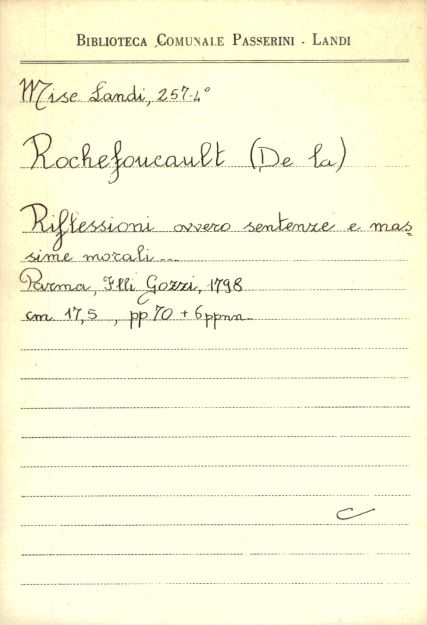 BIBLIOTECA COMUNALE PASSERINI - LANDI
Misc Landi, 257-4°
Rochefoucault (De la)
Riflessioni ovvero sentenze e mas=
sime morali...
Parma, Flli Gozzi, 1798
cm 17,5 , pp 70 + 6 ppnn.
C